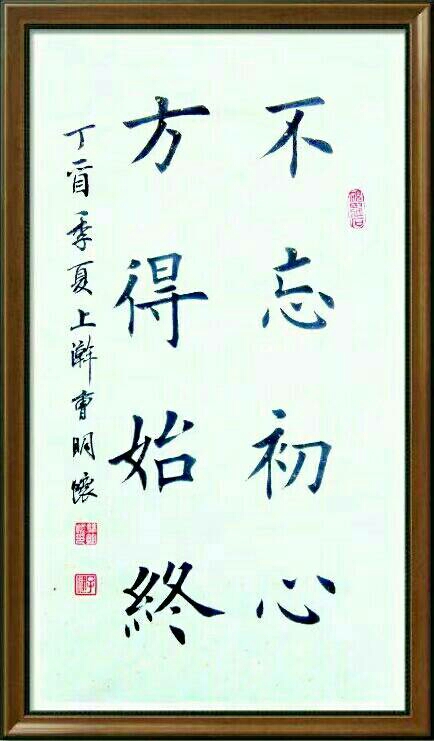 不忘初心
方得始終
丁酉季夏上澣曹明